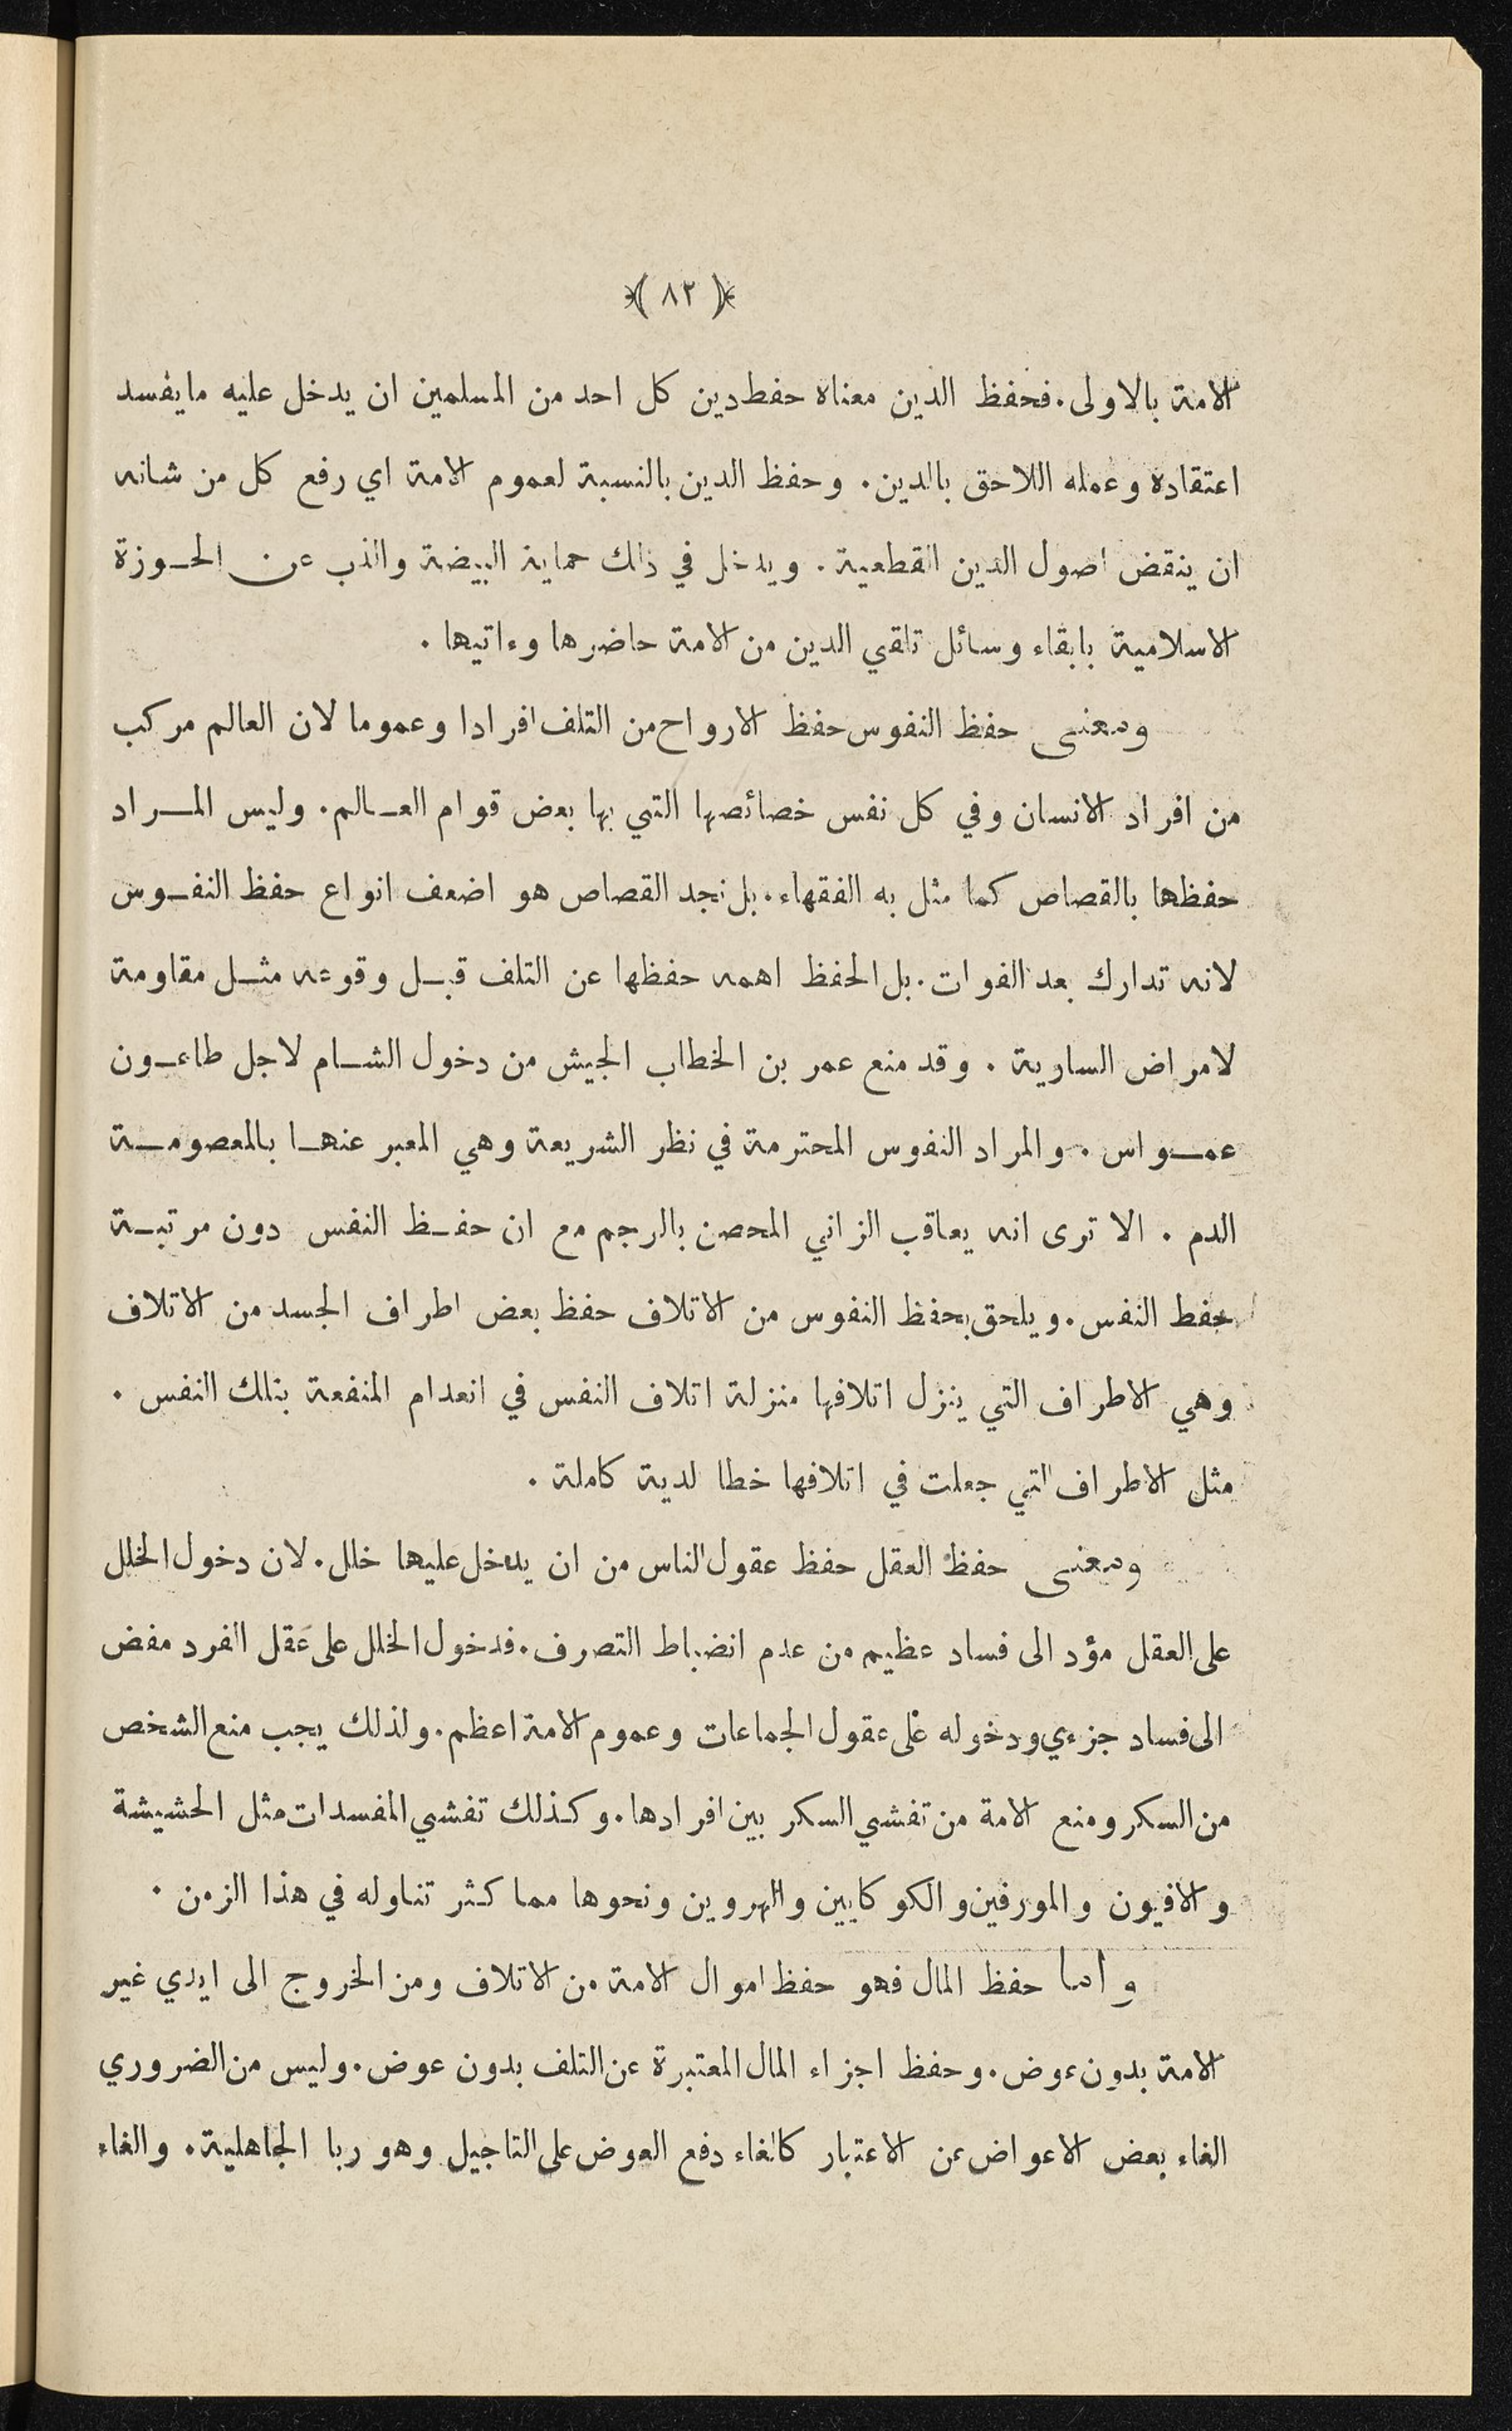 ﴿ ٨٢ ﴾
الامة بالاولى. فحفظ الدين معناه حفط دين كل احد من المسلمين ان يدخل عليه ما يفسد
اعتقاده وعمله اللاحق بالدين. وحفظ الدين بالنسبة لعموم الامة اي رفع كل من شانه
ان ينقض اصول الدين القطعية. ويدخل في ذلك حماية البيضة والذب عن الحـوزة
الاسلامية بابقاء وسائل تلقي الدين من الامة حاضرها وءاتيها.
ومعنى حفظ النفوس حفظ الارواح من التلف افرادا وعموما لان العالم مركب
من افراد الانسان وفي كل نفس خصائصها التي بها بعض قوام العـالم. وليس المـراد
حفظها بالقصاص كما مثل به الفقهاء. بل نجد القصاص هو اضعف انواع حفظ النفـوس
لانه تدارك بعد الفوات. بل الحفظ اهمه حفظها عن التلف قبـل وقوعه مثـل مقاومة
لامراض السارية. وقد منع عمر بن الخطاب الجيش من دخول الشـام لاجل طاعـون
عمـواس. والمراد النفوس المحترمة في نظر الشريعة وهي المعبر عنهـا بالمعصومـة
الدم. الا ترى انه يعاقب الزاني المحصن بالرجم مع ان حفـظ النفس دون مرتبـة
حفط النفس. ويلحق بحفظ النفوس من الاتلاف حفظ بعض اطراف الجسد من الاتلاف
وهي الاطراف التي ينزل اتلافها منزلة اتلاف النفس في انعدام المنفعة بتلك النفس.
مثل الاطراف التي جعلت في اتلافها خطا لدية كاملة.
ومعنى حفظ العقل حفظ عقول الناس من ان يدخل عليها خلل. لان دخول الخلل
على العقل مؤد الى فساد عظيم من عدم انضباط التصرف. فدخول الخلل على عقل الفرد مفض
الى فساد جزءي ودخوله على عقول الجماعات وعموم الامة اعظم. ولذلك يجب منع الشخص
من السكر ومنع الامة من تفشي السكر بين افرادها. وكذلك تفشي المفسدات مثل الحشيشة
والافيون والمورفين والكوكايين والهروين ونحوها مما كثر تناوله في هذا الزمن.
واما حفظ المال فهو حفظ اموال الامة من الاتلاف ومن الخروج الى ايدي غير
الامة بدون عوض. وحفظ اجزاء المال المعتبرة عن التلف بدون عوض. وليس من الضروري
الغاء بعض الاعواض عن الاعتبار كالغاء دفع العوض على التاجيل وهو ربا الجاهلية. والغاء